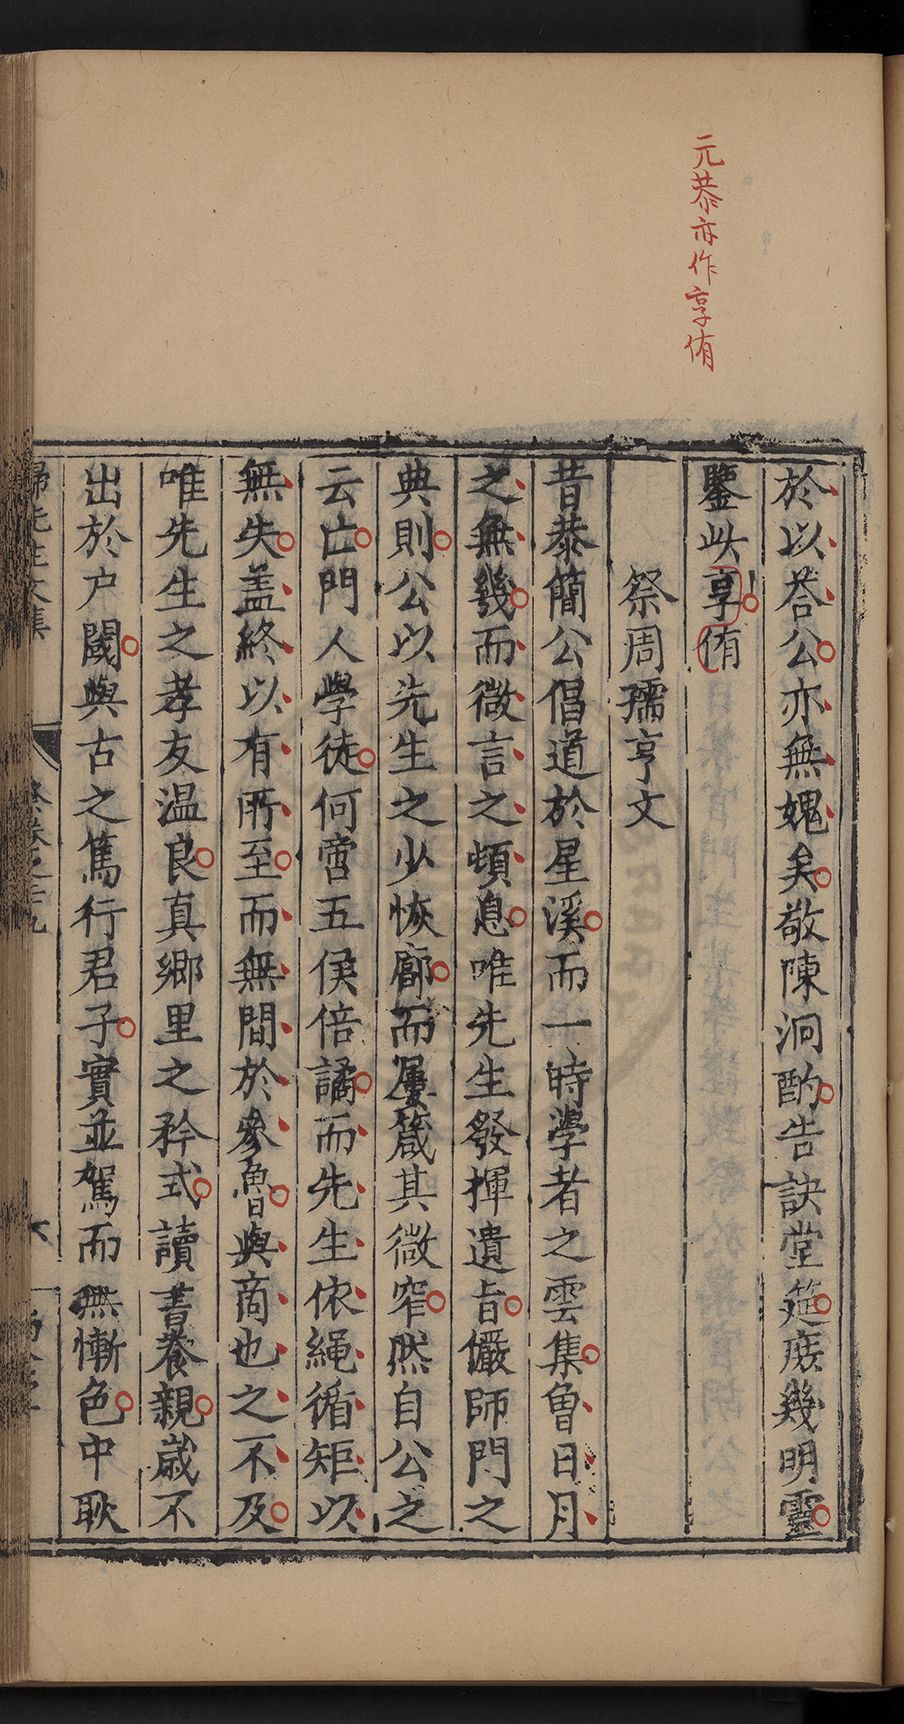 元恭亦作享侑
於以荅公亦無媿矣敬陳泂酌告訣堂筵庻幾明靈
鑒此享侑
祭周孺亨文
昔恭簡公倡道於星溪而一時學者之雲集曾日月
之無幾而微言之頓息唯先生發揮遺旨儼師門之
典則公以先生之少恢廓而屢箴其微窄然自公之
云亡門人學徒何啻五侯倍譎而先生依繩循矩以
無失盖終以有所至而無間於參魯與商也之不及
唯先生之孝友温良真鄉里之矜式讀書養親歲不
出於户閾與古之篤行君子實並駕而無慚色中耿